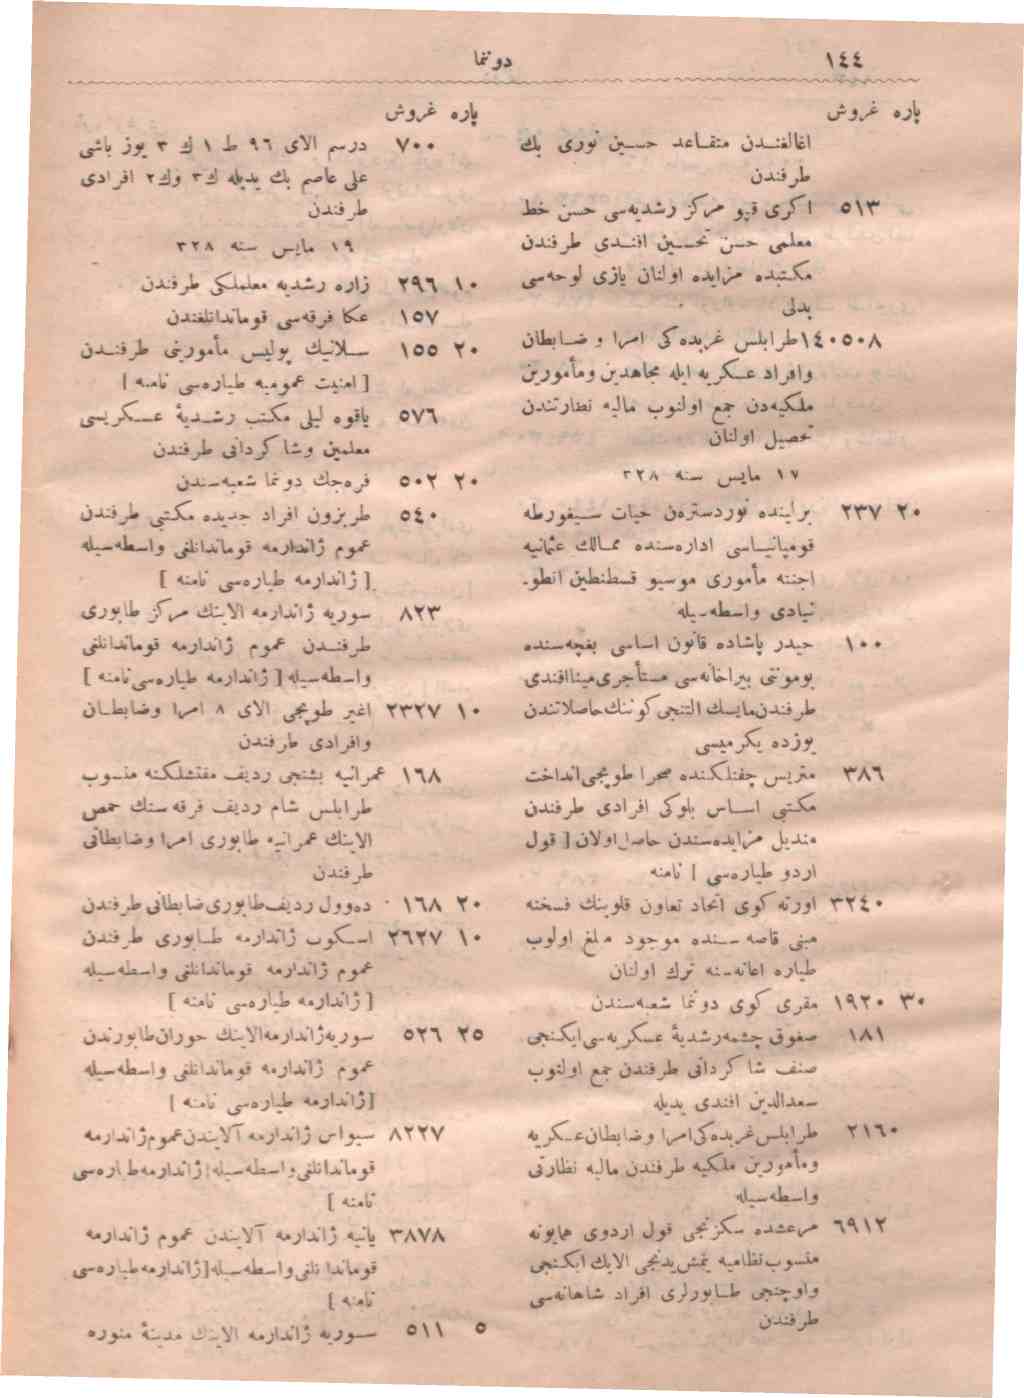 ١٤٤ دوننما
پاره غروش
اغالغندن متقاعد حسين نورى بك
طرفندن
٥١٣ اكرى قپو مركز رشديه‌سى حسن خط
معلمى حسن تحسين افندى طرفندن
مكتبده مزايده اولنان يازى لوحه‌سى
بدلى
١٤٠٥٠٨ طرابلس غربده‌كى امرا و ضابطان
وافراد عسكريه ايله مجاهدين ومأمورين
ملكيه‌دن جمع اولنوب ماليه نظارتندن
تحصيل اولنان
١٧ مايس سنه ٣٢٨
٢٠ ٢٣٧ برلينده نوردسترن حيات سيغورطه
قومپانياسى اداره‌سنده ممالك عثمانيه
اجنته مأمورى موسيو قسطنطين انطو-
نيادى واسطه‌سيله
١٠٠ حيدر پاشاده قانون اساسى بغچه‌سنده
بومونتى بيراخانه‌سى مستأجرى مينا افندى
طرفندن مايسك التنجى كوننك حاصلاتندن
يوزده يكرميسى
٣٨٦ متريس چفتلكنده صحرا طوپجى انداخت
مكتبى اساس بلوكى افرادى طرفندن
منديل مزايده‌سندن حاصل اولان [ قول
اردو طياره‌سى ] نامنه
٣٢٤٠ اورته كوى اتحاد تعاون قلوبنك فسخنه
مبنى قاصه‌سنده موجود مبلغ اولوب
طياره اعانه‌سنه ترك اولنان
٣٠ ١٩٢٠ مقرى كوى دوننما شعبه‌سندن
١٨١ صغوق چشمه رشدية عسكريه‌سى ايكنجى
صنف شاكردانى طرفندن جمع اولنوب
سعدالدين افندى يديله
٢١٦٠ طرابلس غربده‌كى امرا وضابطان عسكريه
ومأمورين ملكيه طرفندن ماليه نظارتى
واسطه‌سيله
٦٩١٢ مرعشده سكزنجى قول اردوى همايونه
منسوب نظاميه يتمش يدنجى الايك ايكنجى
واوچنجى طابورلرى افراد شاهانه‌سى
طرفندن
پاره غروش
٧٠٠ درسم الاى ٩٦ ط ١ ك ٣ يوز باشى
على عاصم بك يديله ك٣ وك٢ افرادى
طرفندن
١٩ مايس سنه ٣٢٨
١٠ ٢٩٦ زاره رشديه معلملكى طرفندن
١٥٧ عكا فرقه‌سى قوماندانلغندن
٢٠ ١٥٥ سلانيك پوليس مأمورينى طرفندن
[ امنيت عموميه طياره‌سى نامنه ]
٥٧٦ ياقوه ليلى مكتب رشدية عسكريسى
معلمين وشاكردانى طرفندن
٢٠ ٥٠٢ فره‌جك دوننما شعبه‌سندن
٥٤٠ طربزون افراد جديده مكتبى طرفندن
عموم ژاندارمه قوماندانلغى واسطه‌سيله
[ ژاندارمه طياره‌سى نامنه ]
٨٢٣ سوريه ژاندارمه الاينك مركز طابورى
طرفندن عموم ژاندارمه قوماندانلغى
واسطه‌سيله [ ژاندارمه طياره‌سى نامنه ]
١٠ ٢٣٢٧ اغير طوپجى الاى ٨ امرا وضابطان
وافرادى طرفندن
١٦٨ عمرانيه بشنجى رديف مفتشلكنه منسوب
طرابلس شام رديف فرقه‌سنك حمص
الاينك عمرانيه طابورى امرا وضابطانى
طرفندن
٢٠ ١٦٨ ده‌وول رديف طابورى ضابطانى طرفندن
١٠ ٢٦٢٧ اسكوب ژاندارمه طابورى طرفندن
عموم ژاندارمه قوماندانلغى واسطه‌سيله
[ ژاندارمه طياره‌سى نامنه ]
٢٥ ٥٢٦ سوريه ژاندارمه الاينك حوران طابورندن
عموم ژاندارمه قوماندانلغى واسطه‌سيله
[ ژاندارمه طياره‌سى نامنه ]
٨٢٢٧ سيواس ژاندارمه آلايندن عموم ژاندارمه
قوماندانلغى واسطه‌سيله [ ژاندارمه طياره‌سى
نامنه ]
٣٨٧٨ يانيه ژاندارمه آلايندن عموم ژاندارمه
قوماندانلغى واسطه‌سيله [ ژاندارمه طياره‌سى
نامنه ]
٥ ٥١١ سوريه ژاندارمه الاينك مدينة منوره